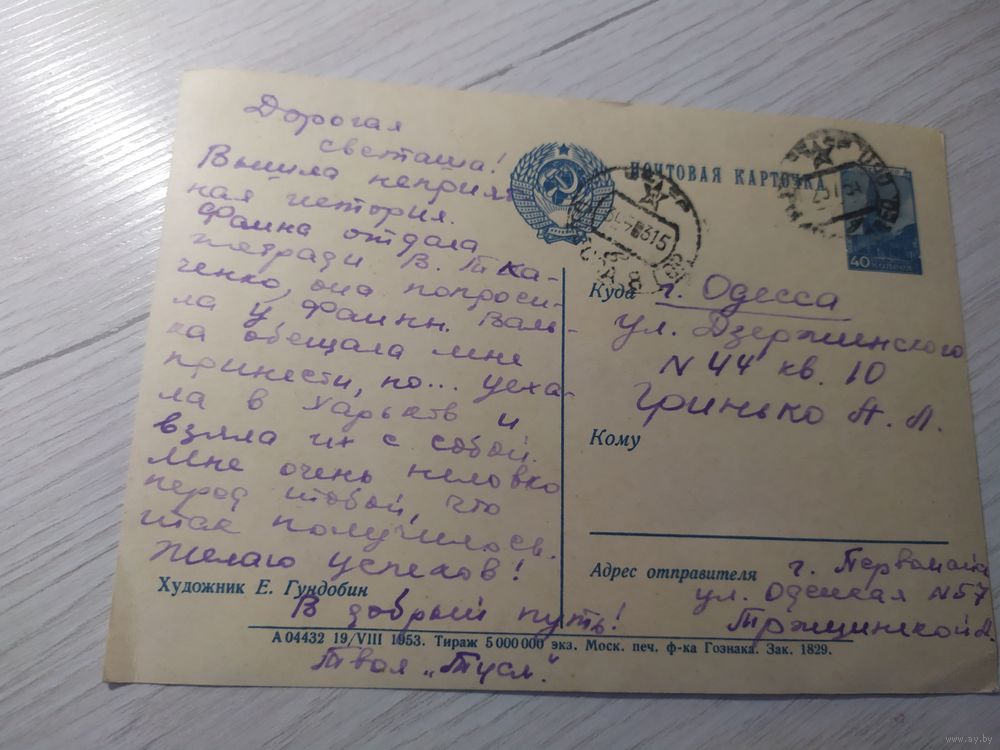 Дорогая
Светаша!
Вышла неприят
ная история.
Фаина отдала
тетради В. Тка-
ченко, она попроси-
ла у Фаины. Валь-
ка обещала мне
принести, но... уеха-
ла в Харьков и
взяла их с собой.
Мне очень неловко
перед тобой, что
так получилось.
Желаю успехов!
В добрый путь!
Твоя „Туся".
Художник Е. Гундобин
ПОЧТОВАЯ КАРТОЧКА
40 КОПЕЕК
Куда г. Одесса
ул. Дзержинского
N 44 кв. 10
Гринько А. Л.
Кому
Адрес отправителя г. Первомайск
ул. Одесская N 57
А 04432 19/VIII 1953. Тираж 5 000 000 экз. Моск. печ. ф-ка Гознака. Зак. 1829.
www.ay.by